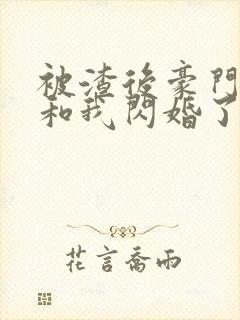 被渣後豪門
和我閃婚了
花言喬雨